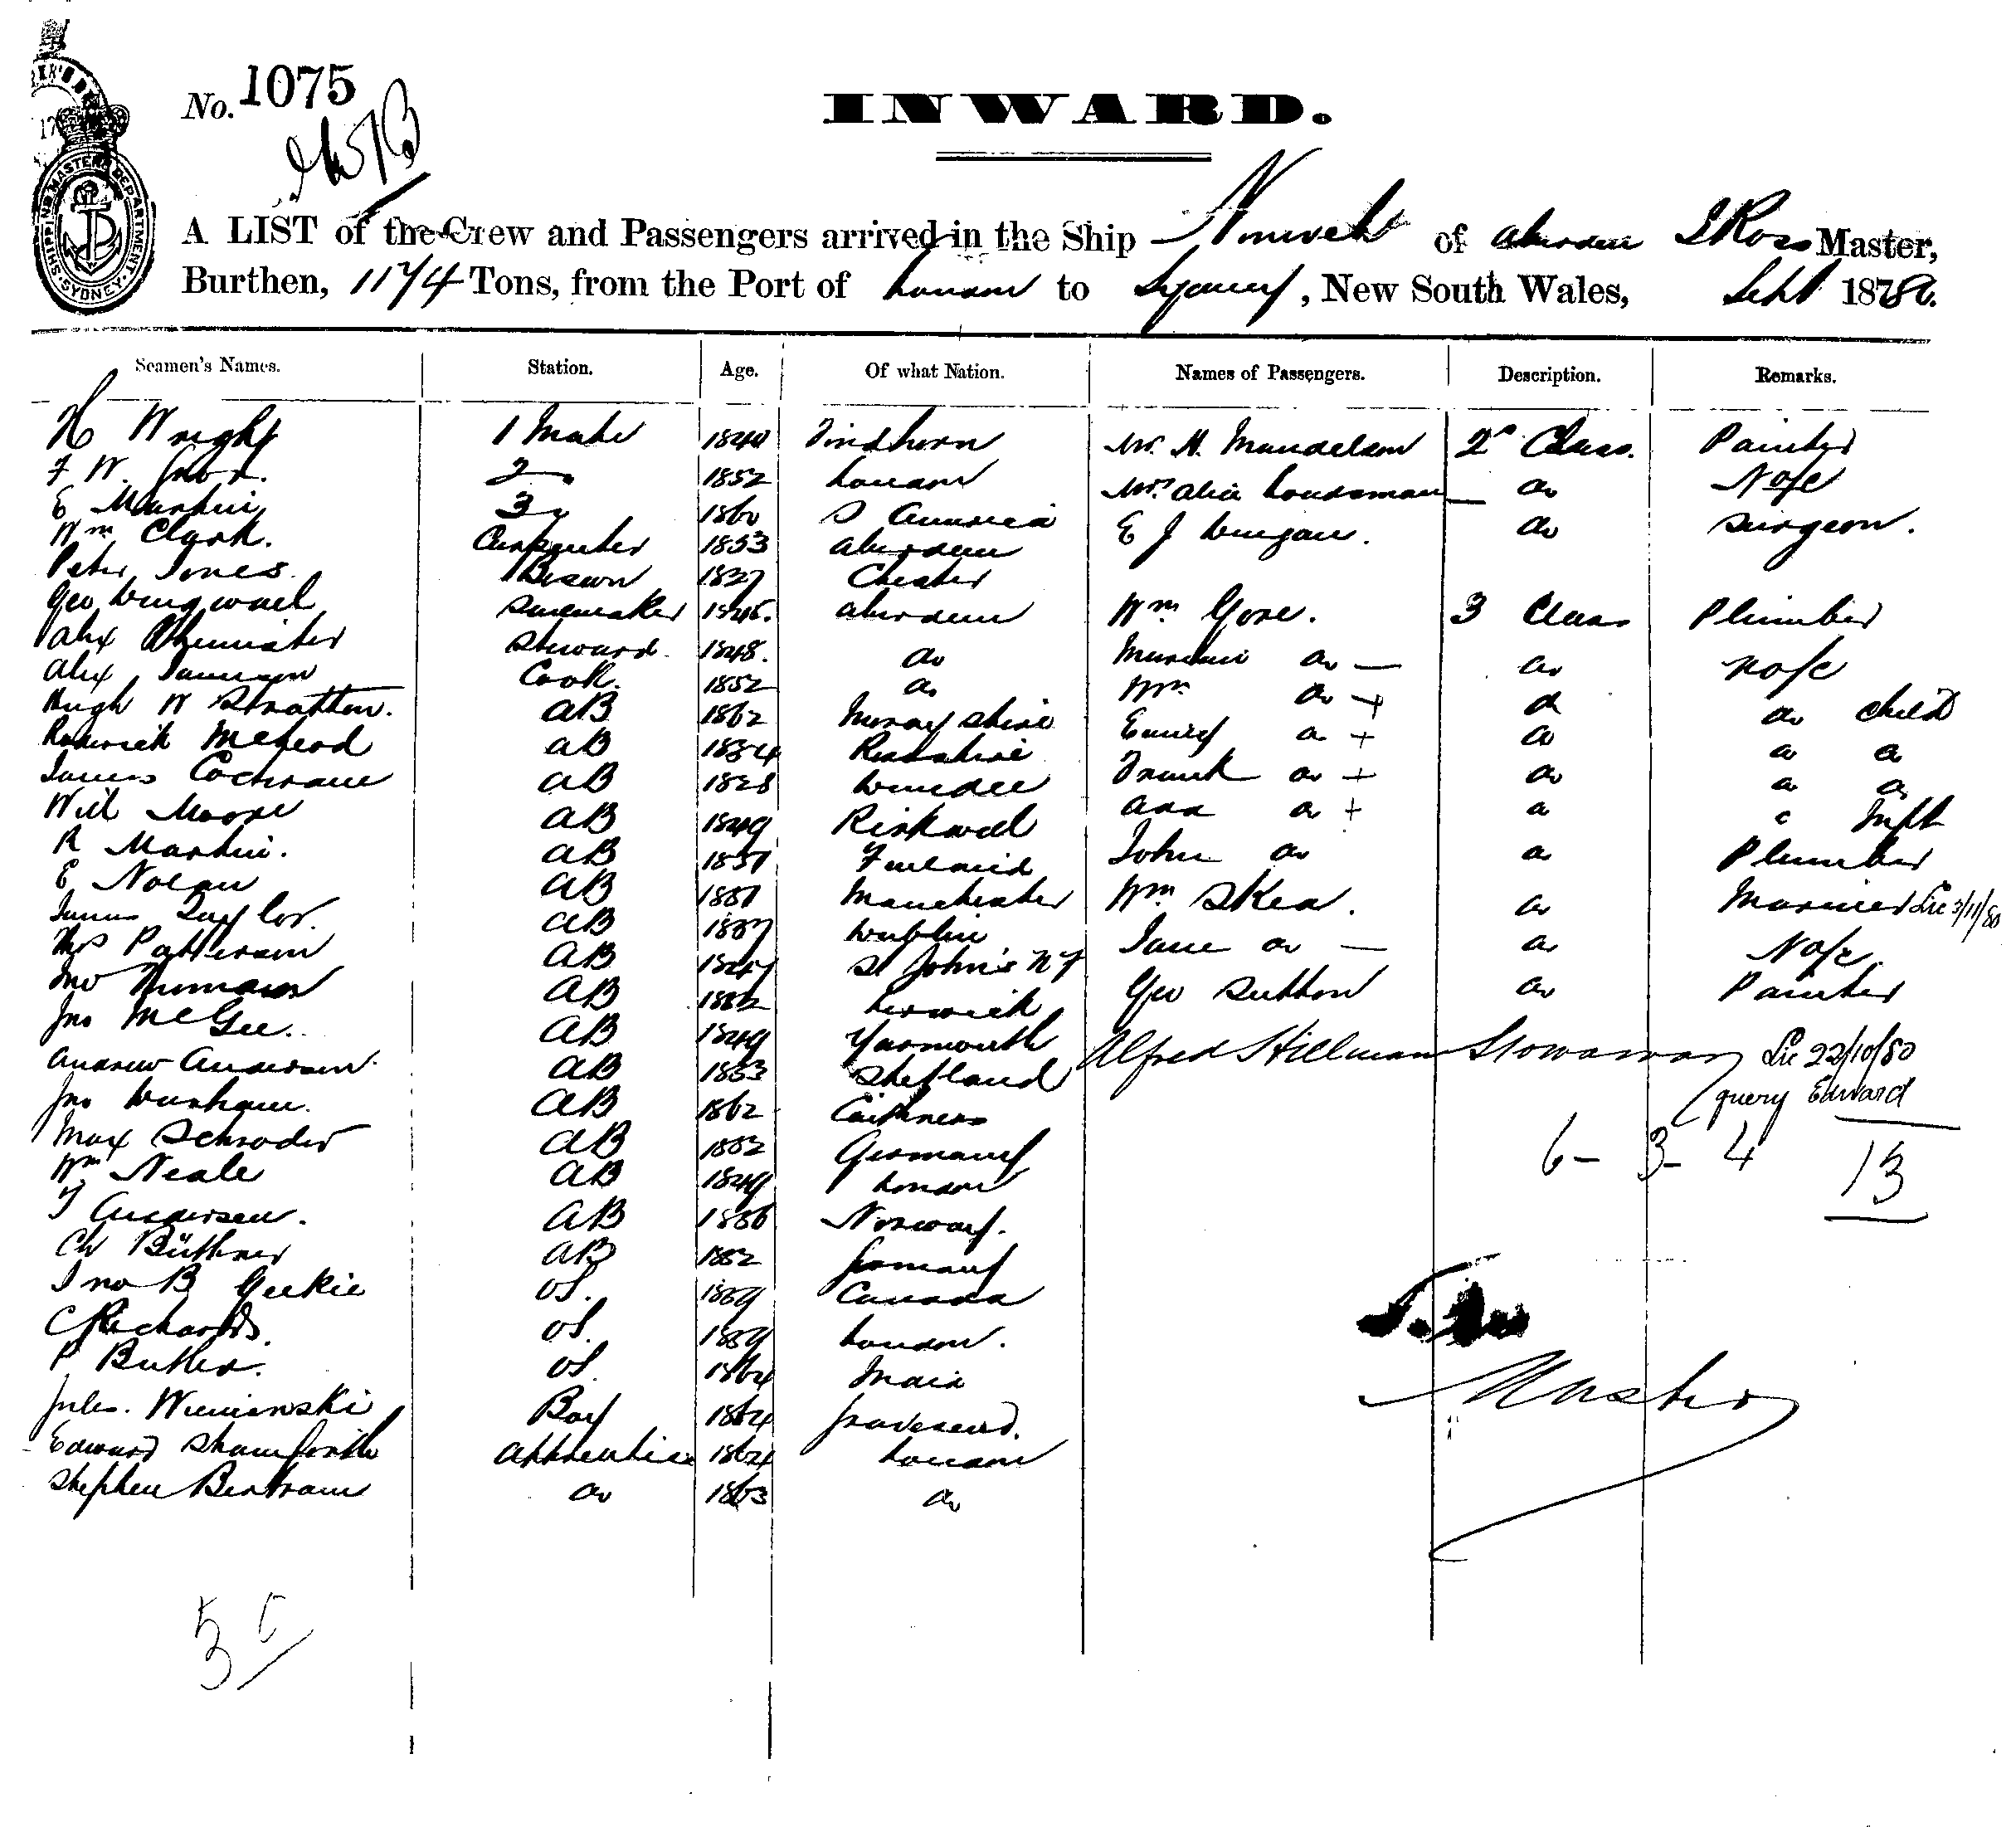 No. 1075
INWARD.
SHIPPING MASTER'S DEPARTMENT SYDNEY
A LIST of the Crew and Passengers arrived in the Ship of Aberdeen Ross Master,
Burthen, 1174 Tons, from the Port of London to Sydney, New South Wales, Sept 1880.
Seamen's Names. Station. Age. Of what Nation. Names of Passengers. Description. Remarks.
H Wright 1 Mate 1840 Findhorn Mr. H. Mandelson 2d Class. Painter
F W. 2 1852 London Mrs do
E Martin 3 1860 S America E J do Surgeon.
Wm Clark. Carpenter 1853 Aberdeen
Peter Jones. Bosun 1827 Chester
Geo Dingwall Sailmaker 1846. Aberdeen Wm Gore. 3 Class Plumber
Alex Steward 1848. do do do
Alex Cook. 1852 do Wm do + do do Child
Hugh W Stratton. AB 1862 Moray Shire Emily do + do do do
Roderick McLeod AB Ross shire Frank do + do do do
James Cochrane AB 1828 Dundee Ann do + do Inft
Will Moore AB 1849 Kirkwall John do do Plumber
R Martin. AB Finland
E Nolan AB Manchester Wm Skea. do Mariner Lic 3/11/80
James Taylor. AB Dublin Jane do do
Thos Patterson AB St John's NF Geo Sutton do Painter
Jno Thomason AB Lerwick
Jno McGee. AB 1849 Yarmouth Alfred Hillman Stowaway Lic 22/10/80
Andrew Anderson. AB 1853 Shetland query Edward
Jno AB 1862 Caithness
Max Schroder AB 1852 Germany 6 - 3 - 4 13
Wm Neale AB 1849 London
T Andersen. AB 1856 Norway.
Ch Büthner AB 1852 Germany
Jno B Geekie OS. 1859 Canada
C Richards. OS. 1859 London.
P Butler. OS. 1864 India Master
Jules. Wieniawski Boy 1864 Gravesend.
Edward Apprentice 1864 London
Stephen Bertram do 1863 do